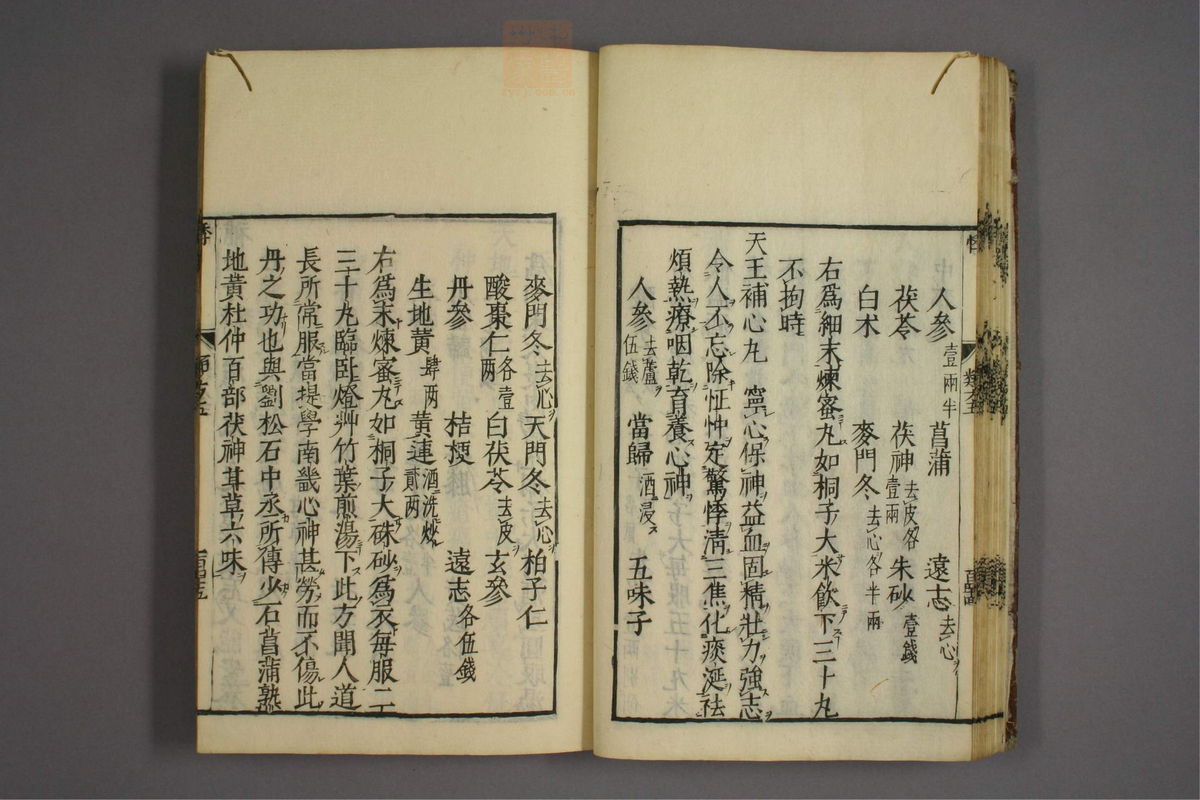 人參壹兩半 菖蒲 遠志去心
茯苓 茯神去皮各壹兩 朱砂壹錢
白术 麥門冬去心各半兩
右爲細末煉蜜丸如桐子大米飲下三十丸
不拘時
天王補心丸 寧心保神益血固精壯力強志
令人不忘除怔忡定驚悸清三焦化痰涎祛
煩熱療咽乾育養心神
人參去蘆伍錢 當歸酒浸 五味子
麥門冬去心 天門冬去心 柏子仁
酸棗仁各壹兩 白茯苓去皮 玄參
丹參 桔梗 遠志各伍錢
生地黃肆兩 黃連酒洗炒貳兩
右爲末煉蜜丸如桐子大硃砂爲衣每服二
三十丸臨臥燈艸竹葉煎湯下此方聞人道
長所常服當提學南畿心神甚勞而不傷此
丹之功也與劉松石中丞所傳少石菖蒲熟
地黃杜仲百部茯神甘草六味